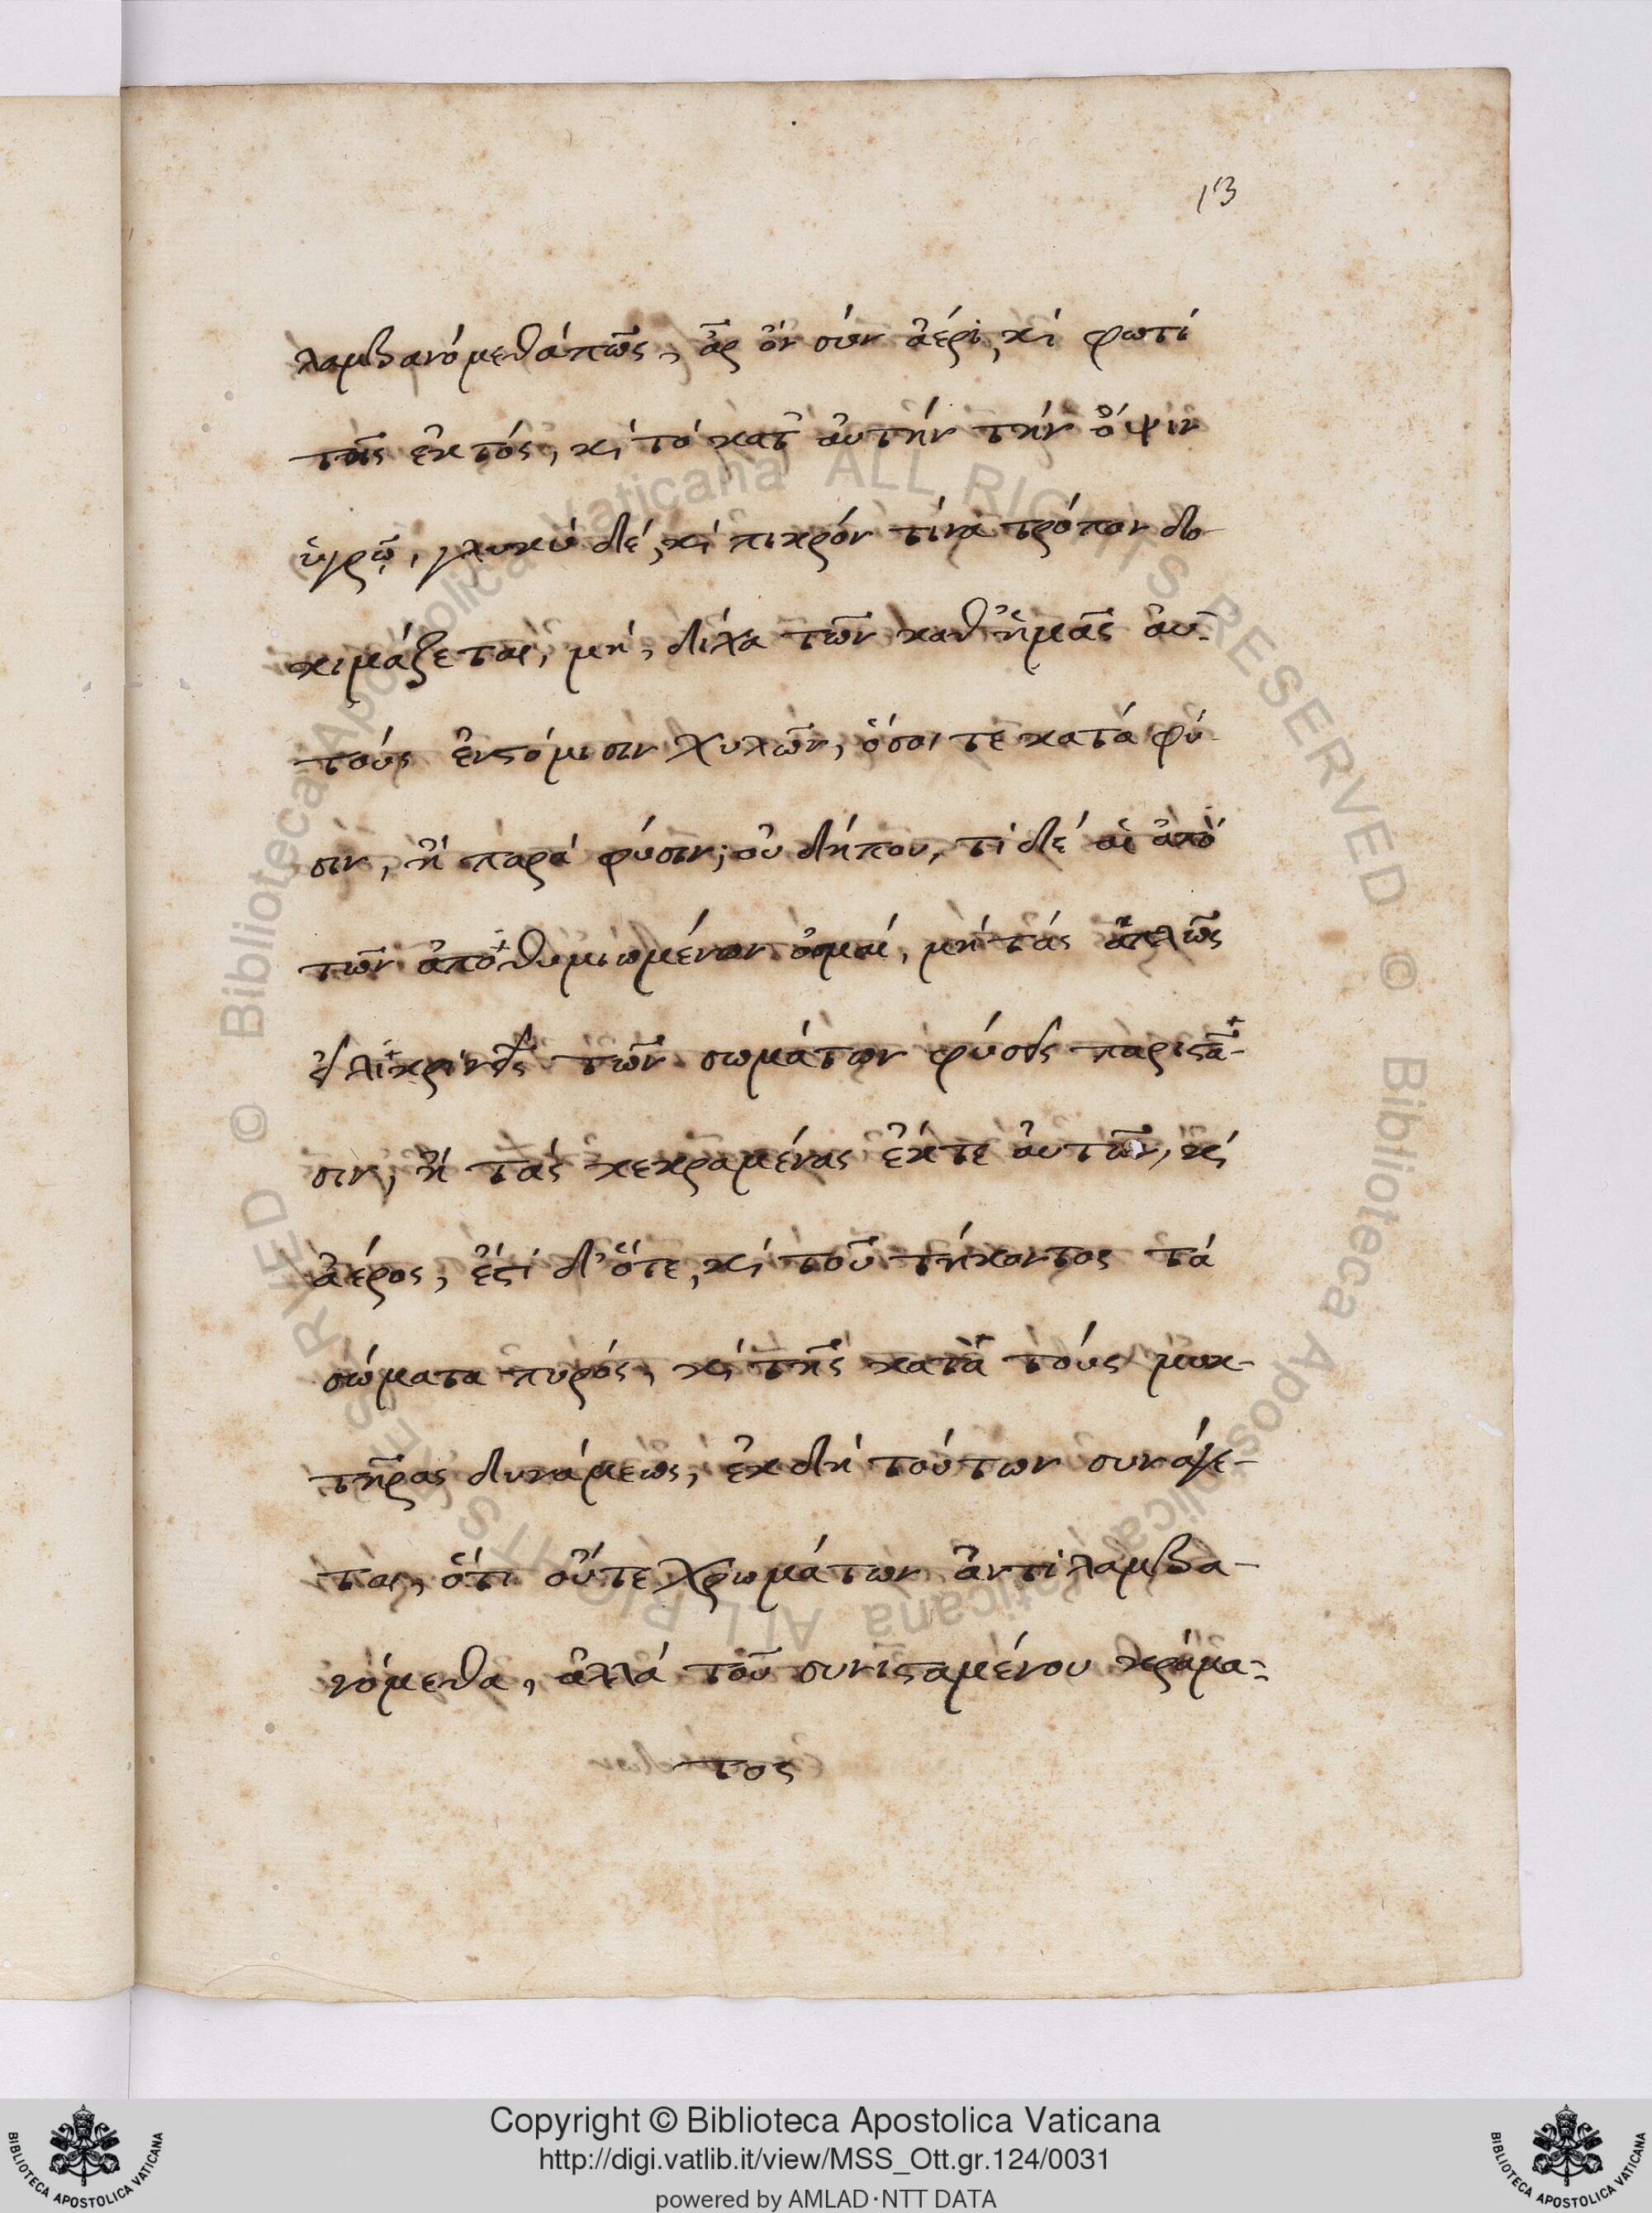 13
λαμβανόμεθά πως, ἆρ ὂν σύν ἀέρι, κὶ φωτί
τοῖς ἐκτός, κὶ τό κατ' ἀυτήν τήν ὄψιν
ὑγρῷ, γλυκύ δέ, κὶ πικρόν τίνα τρόπον δο-
κιμάζεται, μή, δίχα τῶν καθ' ἡμᾶς αὐ-
τούς ἐνστόμισιν χυλῶν, ὅσοι τε κατά φύ-
σιν, ἢ παρά φύσιν; οὐ δήπου, τί δέ αἱ ἀπό
τῶν ἀποθυμιωμένων ὀσμαί, μή τάς ἁπλῶς
εἰλικρινεῖς τῶν σωμάτων φύσεις παριστᾶ-
σιν, ἢ τάς κεκραμένας ἔκτε ἀυτῶν, κὶ
ἀέρος, ἔστι δ' ὅτε, κὶ τοῦ τήκοντος τά
σώματα πυρός, κὶ τῆς κατὰ τούς μυκ-
τῆρας δυνάμεως, ἐκ δή τούτων συνάγε-
ται, ὅτι οὔτε χρωμάτων ἀντιλαμβα-
νόμεθα, ἀλλά τοῦ συνισταμένου κράμα-
τος
Copyright © Biblioteca Apostolica Vaticana
http://digi.vatlib.it/view/MSS_Ott.gr.124/0031
powered by AMLAD·NTT DATA
BIBLIOTECA APOSTOLICA VATICANA
BIBLIOTECA APOSTOLICA VATICANA
© Biblioteca Apostolica Vaticana ALL RIGHTS RESERVED © Biblioteca Apostolica Vaticana ALL RIGHTS RESERVED